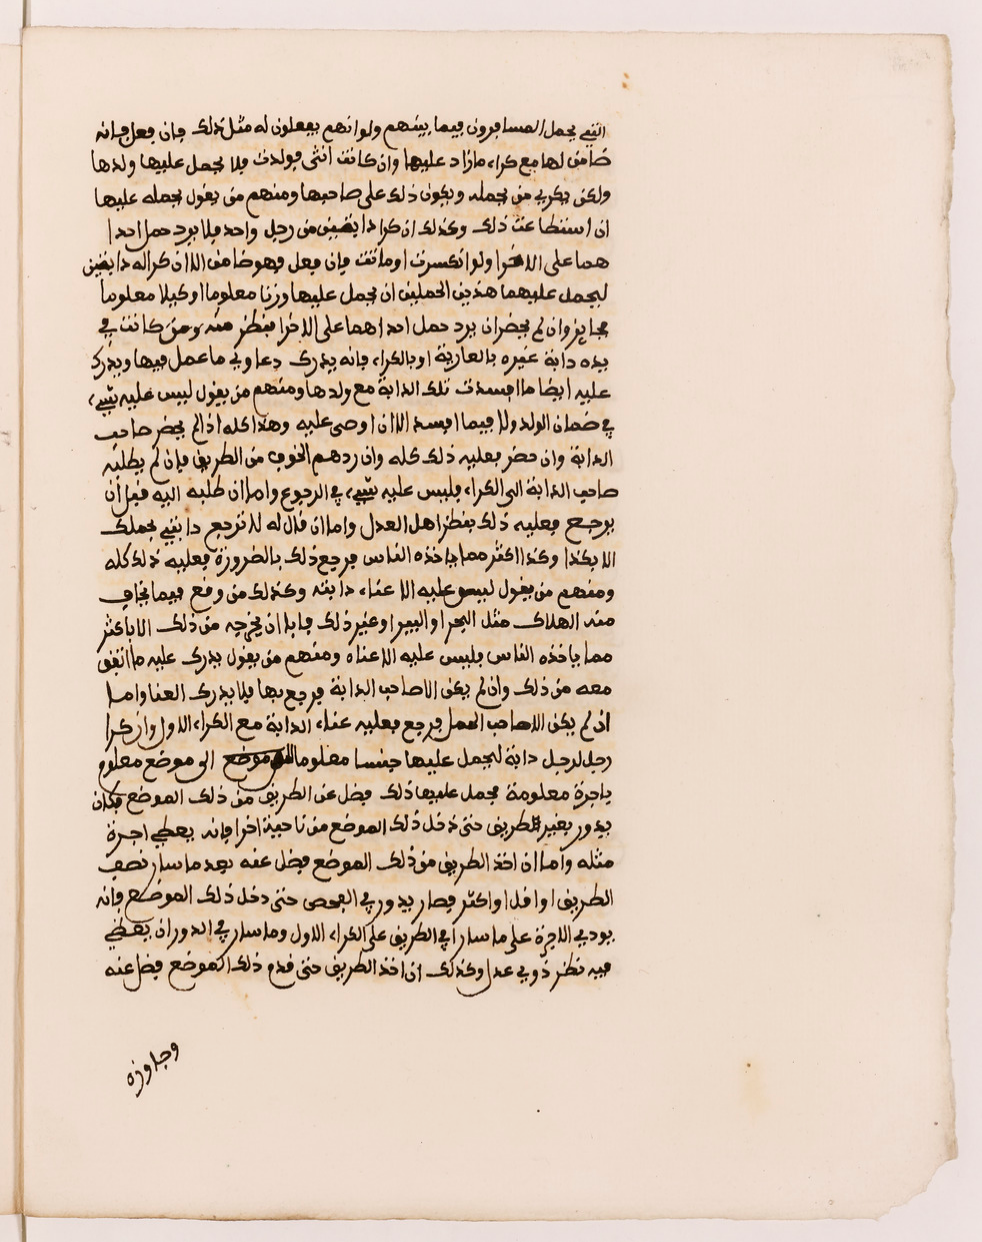 التي يحمل المسافرون فيما بينهم ولو انهم يفعلون له مثل ذلك فإن فعل فإنه
ضامن لها مع كراء ما زاد عليها وان كانت انثى فولدت فلا يحمل عليها ولدها
ولكن يكري من يحمله ويكون ذلك على صاحبها ومنهم من يقول يحمله عليها
ان استطاعت ذلك وكذلك ان كرا دابتين من رجل واحد فلا يرد حمل احدا
هما على الاخرا ولو انكسرت او ماتت فإن فعل فهو ضامن الا ان كراله دابتين
ليحمل عليهما هذين الحملين ان يحمل عليها وزنا معلوما او كيلا معلوما
فجايز وان لم يحضر ان يرد حمل احداهما على الاخرا فينظر منه ومن كانت في
يده دابة غيره بالعارية او بالكراء فإنه يدرك دعاوي ما عمل فيها ويدرك
عليه ايضا ما افسدت تلك الدابة مع ولدها ومنهم من يقول ليس عليه شيء
في ضمان الولد ولا فيما افسد الا ان اوصى عليه وهذا كله اذا لم يحضر صاحب
الدابة وان حضر فعليه ذلك كله وان ردهم الخوف من الطريق فإن لم يطلبه
صاحب الدابة الى الكراء فليس عليه شيء في الرجوع واما ان طلبه اليه قبل أن
يرجع فعليه ذلك بنظر اهل العدل واما ان قال له لا ترجع دابتي بحملك
الا بكذا وكذا اكثر مما ياخذه الناس فرجع ذلك بالضرورة فعليه ذلك كله
ومنهم من يقول ليس عليه الا عناء دابته وكذلك من وقع فيما يخاف
منه الهلاك مثل البحر او البير او غير ذلك فابا ان يخرجه من ذلك الا باكثر
مما ياخذه الناس فليس عليه الا عناه ومنهم من يقول يدرك عليه ما اتفق
معه من ذلك وان لم يكن الا صاحب الدابة فرجع بها فلا يدرك العنا واما
اذ لم يكن الا صاحب الحمل فرجع فعليه عناء الدابة مع الكراء الاول وان كرا
رجل لرجل دابة ليحمل عليها جنسا معلوما موضع الى موضع معلوم
باجرة معلومة فحمل عليها ذلك فضل عن الطريق من ذلك الموضع فكان
يدور بغير الطريق حتى دخل ذلك الموضع من ناحية اخرا فإنه يعطي اجرة
مثله واما ان اخذ الطريق من ذلك الموضع فضل عنه بعد ما سار نصف
الطريق او اقل او اكثر فصار يدور في الفحص حتى دخل ذلك الموضع فإنه
يودي الاجرة على ما سار في الطريق على الكراء الاول وما سار في الدوران يعطي
فيه نظر ذوي عدل وكذلك ان اخذ الطريق حتى قدم ذلك الموضع فضل عنه
وجاوزه